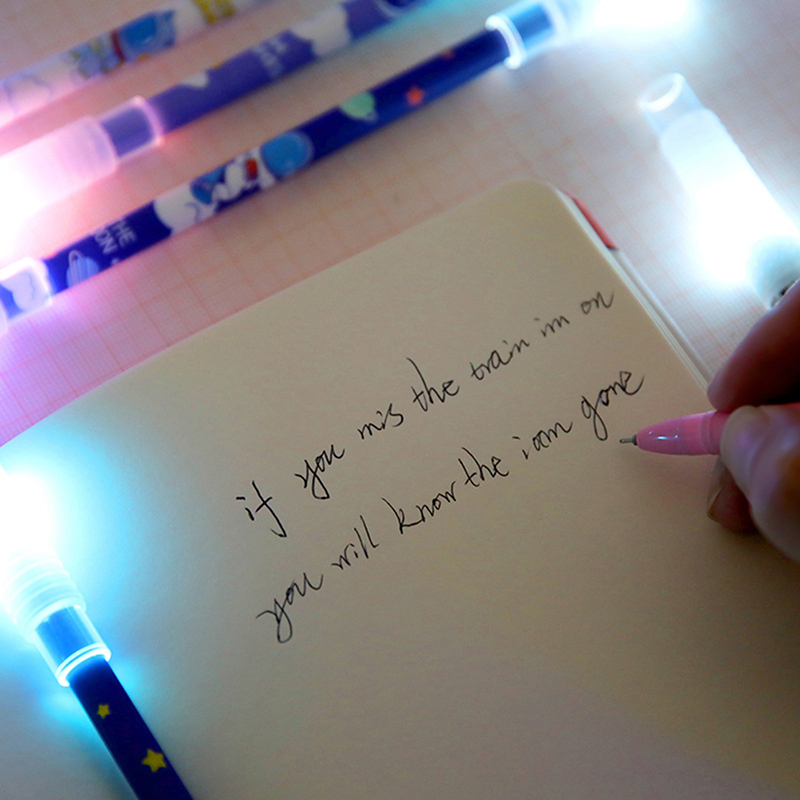 if you mis the train im on
you will know the i am gone
THE